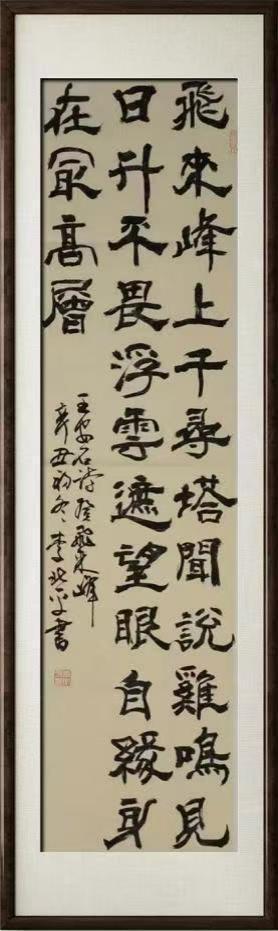 飛來峰上千尋塔聞說雞鳴見
日升不畏浮雲遮望眼自緣身
在最高層
王安石詩登飛來峰
辛丑初冬李書